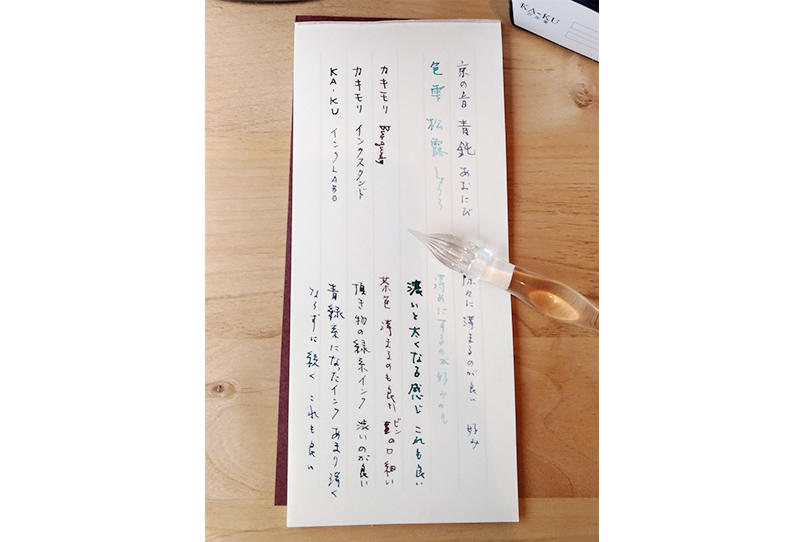 京の音 青鈍 あおにび 徐々に薄まるのが良い 好み
色雫 松露 しょうろ 薄めにするのが好みかも
濃いと太くなる感じ これも良い
カキモリ 茶色 薄まるのも良い ビンの口細い
カキモリ インクスタンド 頂き物の緑系インク 濃いのが良い
KA-KU インクLABO 青緑系になったインク あまり薄く
ならずに続く これも良い
KA-KU